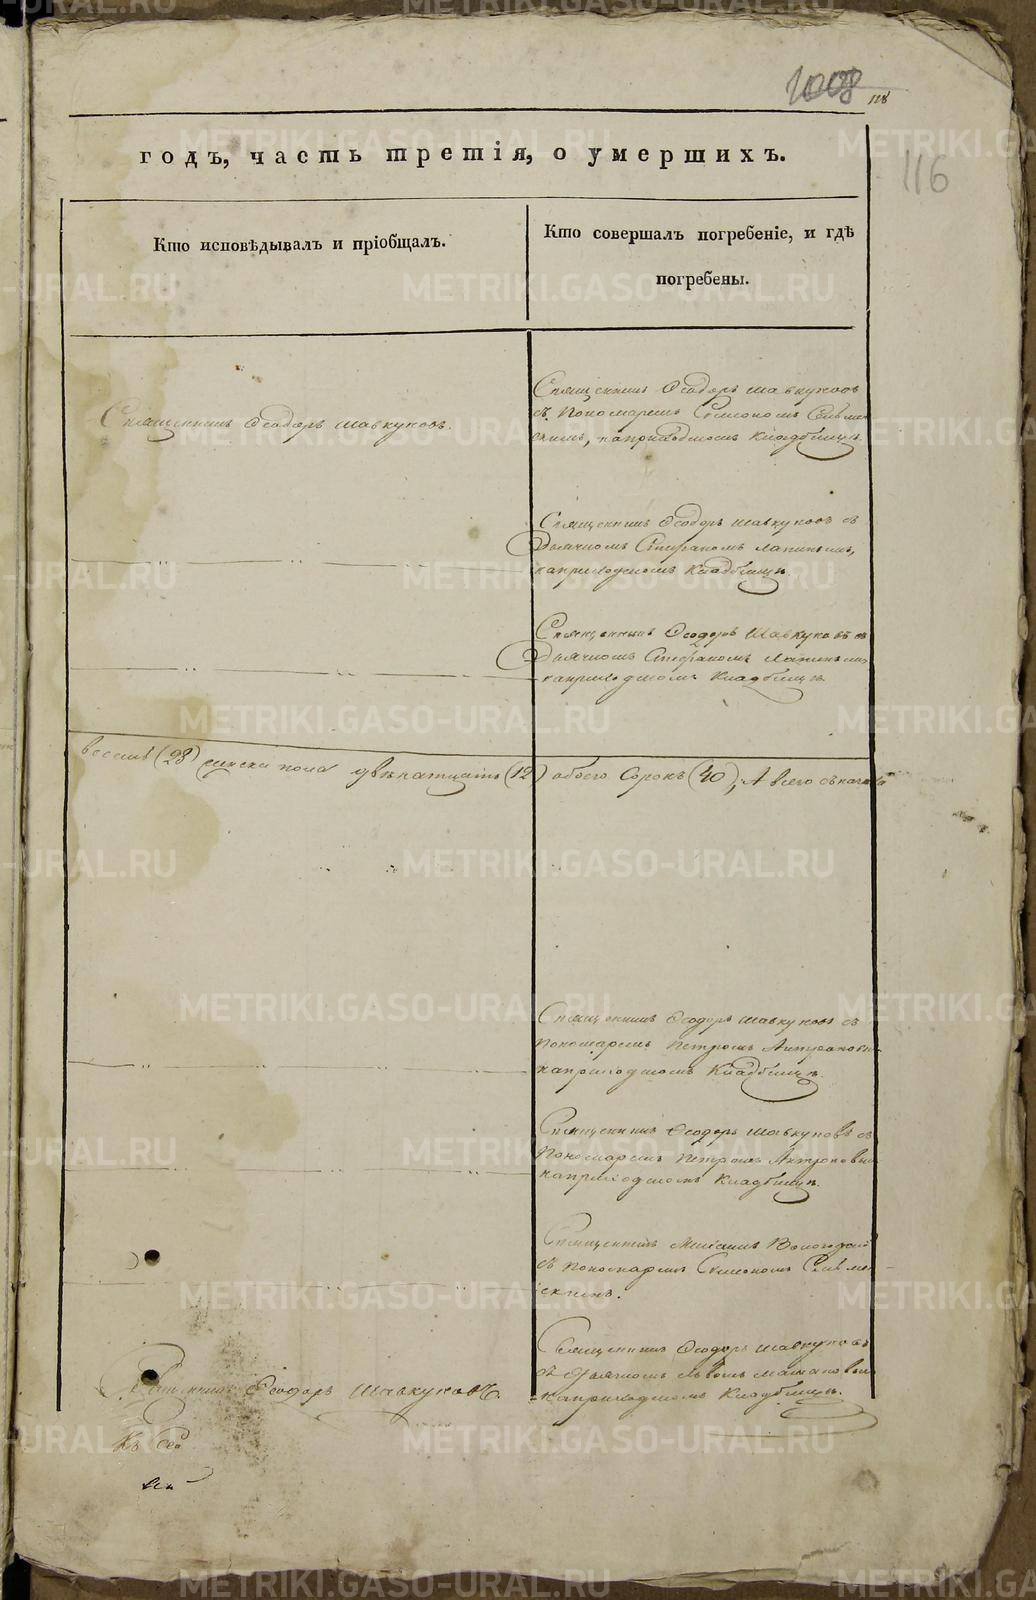 1008
118
116
годъ, часть третія, о умершихъ.
Кто исповѣдывалъ и пріобщалъ.
Кто совершалъ погребеніе, и гдѣ
погребены.
Священникъ Ѳеодоръ Шавкуновъ.
Священникъ Ѳеодоръ Шавкуновъ
съ Пономаремъ Симеономъ Сельмен
скимъ, наприходскомъ Кладбищѣ.
Священникъ Ѳеодоръ Шавкуновъ съ
Дьячкомъ Стефаномъ Лапинымъ,
наприходскомъ Кладбищѣ.
Священникъ Ѳеодоръ Шавкуновъ съ
Дьячкомъ Стефаномъ Лапинымъ
наприходскомъ Кладбищѣ.
восемь (28) женска пола двѣнатцать (12) обоего Сорокъ (40), А всего съначала
Священникъ Ѳеодоръ Шавкуновъ съ
Пономаремъ Петромъ Антроповым
наприходскомъ Кладбищѣ.
Священникъ Ѳеодоръ Шавкуновъ съ
Пономаремъ Петромъ Антроповым
наприходскомъ Кладбищѣ.
Священникъ
съ Пономаремъ Симеономъ Сельмен
скимъ.
Священникъ Ѳеодоръ Шавкуновъ
Священникъ Ѳеодоръ Шавкуновъ
съ Дьячкомъ
наприходскомъ Кладбищѣ.
METRIKI.GASO-URAL.RU